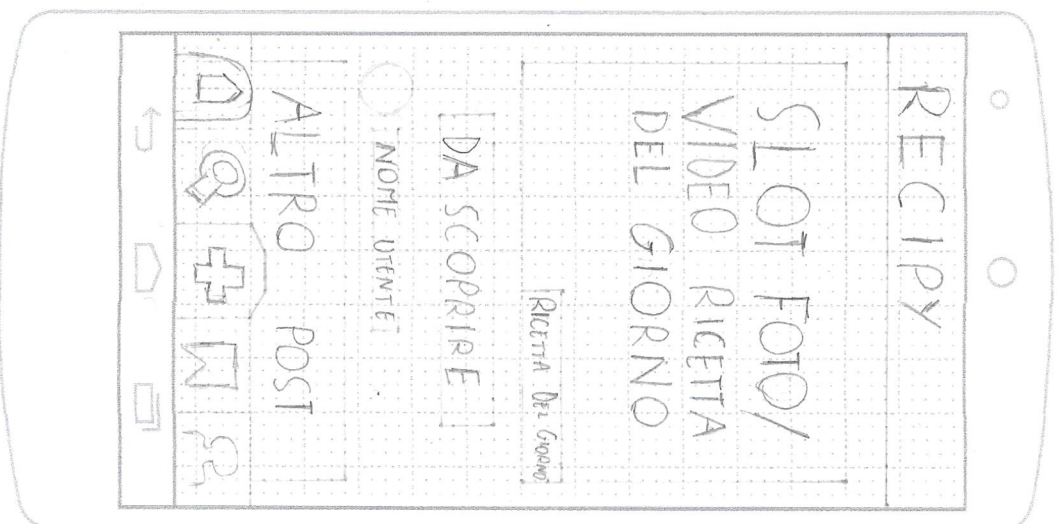 RECIPY
SLOT FOTO/
VIDEO RICETTA
DEL GIORNO
RICETTA DEL GIORNO
DA SCOPRIRE
NOME UTENTE
ALTRO POST